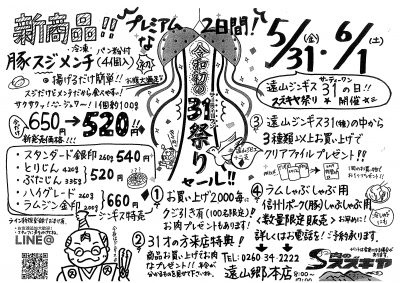 新商品!!
プレミアムな2日間!
5/31(金)・6/1(土)
冷凍 パン粉付
豚スジメンチ(4個入)
@揚げるだけ簡単!!
スジだけどメンチだから食べやすい!
サクサクッ/ジューシー/1個約100g
650円→520円!!
新発売価格!!!
・スタンダード銀印 260g 540円
・とりじん 420g
・ぶたじん 335g
520円
・ハイグレード 260g
・ラムジン金印
560円
ジンギス特売
LINE@
令和初の
31祭り
セール!!
遠山ジンギス31の日!!
サーティーワン
スズキヤ祭り 開催
③遠山ジンギス31(種)の中から
3種類以上お買い上げで
クリアファイルプレゼント!!
①お買い上げ2,000毎に
クジ引き有(100名限定)!
お肉プレゼントもあります!
②31才の方来店特典!
商品お買い上げでお肉
プレゼント!!
④ラムしゃぶしゃぶ用
信州ポーク(豚)しゃぶしゃぶ用
<数量限定販売>お早めに!
詳しくはお電話を!ご予約承ります。
TEL: 0260-34-2222
遠山郷本店
8:00〜17:00
肉のスズキヤ